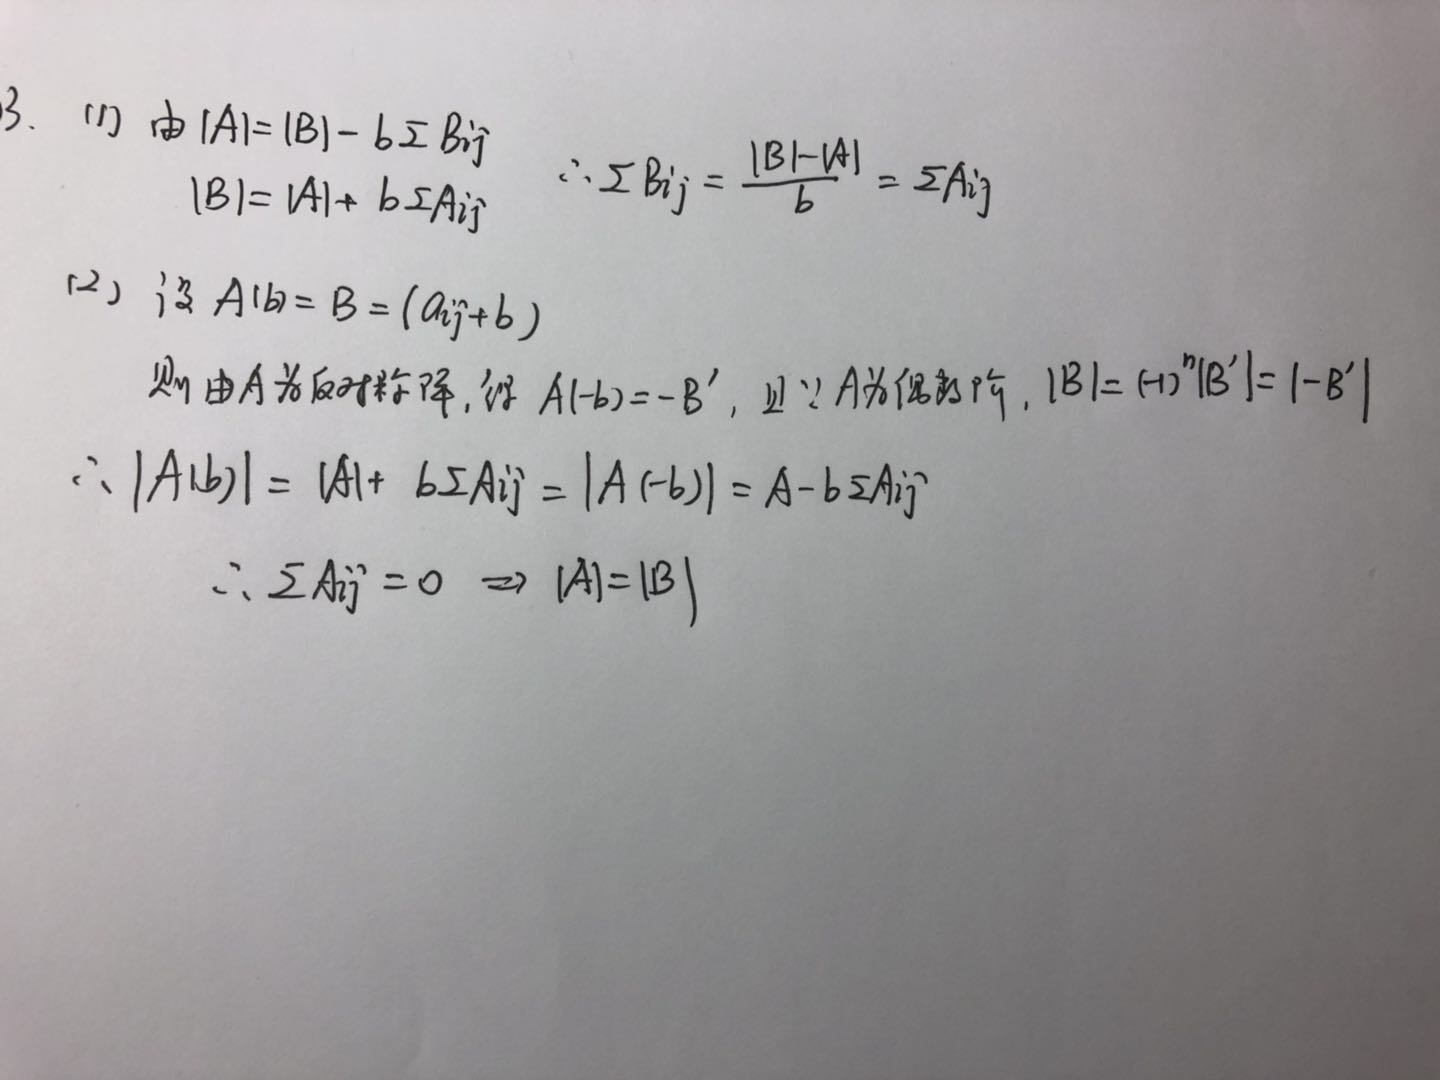 3. (1) 由|A|=|B|-bΣBij
|B|=|A|+bΣAij ∴ΣBij=(|B|-|A|)/b=ΣAij
(2) 设A(b)=B=(aij+b)
则由A为反对称阵,得 A(-b)=-B′, 且∵A为偶数阶, |B|=(-1)ⁿ|B′|=|-B′|
∴|A(b)|=|A|+bΣAij=|A(-b)|=A-bΣAij
∴ΣAij=0 ⇒ |A|=|B|